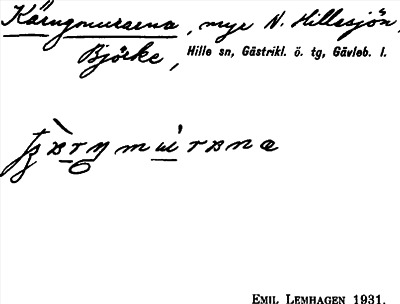 Käringmurarna, myr N. Hillesjön,
Björke, Hille sn, Gästrikl. ö. tg, Gävleb. l.
EMIL LEMHAGEN 1931.